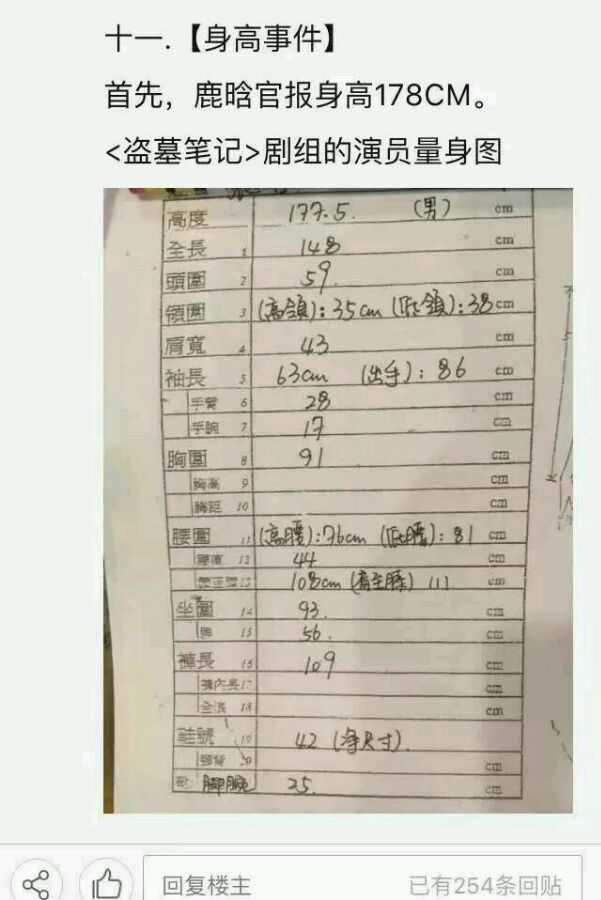 十一.【身高事件】
首先，鹿晗官报身高178CM。
<盗墓笔记>剧组的演员量身图
高度 177.5. (男) cm
全長 1 148 cm
頭圍 2 59 cm
領圍 3 (高領):35cm (低領):38 cm
肩寬 4 43 cm
袖長 5 63cm (出手):86 cm
手臂 6 28 cm
手腕 7 17 cm
胸圍 8 91 cm
胸高 9 cm
胸距 10 cm
腰圍 11 (高腰):76cm (低腰):81 cm
腰直 12 44 cm
13 108cm 111 cm
坐圍 14 93. cm
15 56. cm
褲長 16 109 cm
褲內長 17 cm
全浪 18 cm
鞋號 19 42 (淨尺寸).
cm
腳腕 25. cm
回复楼主
已有254条回贴